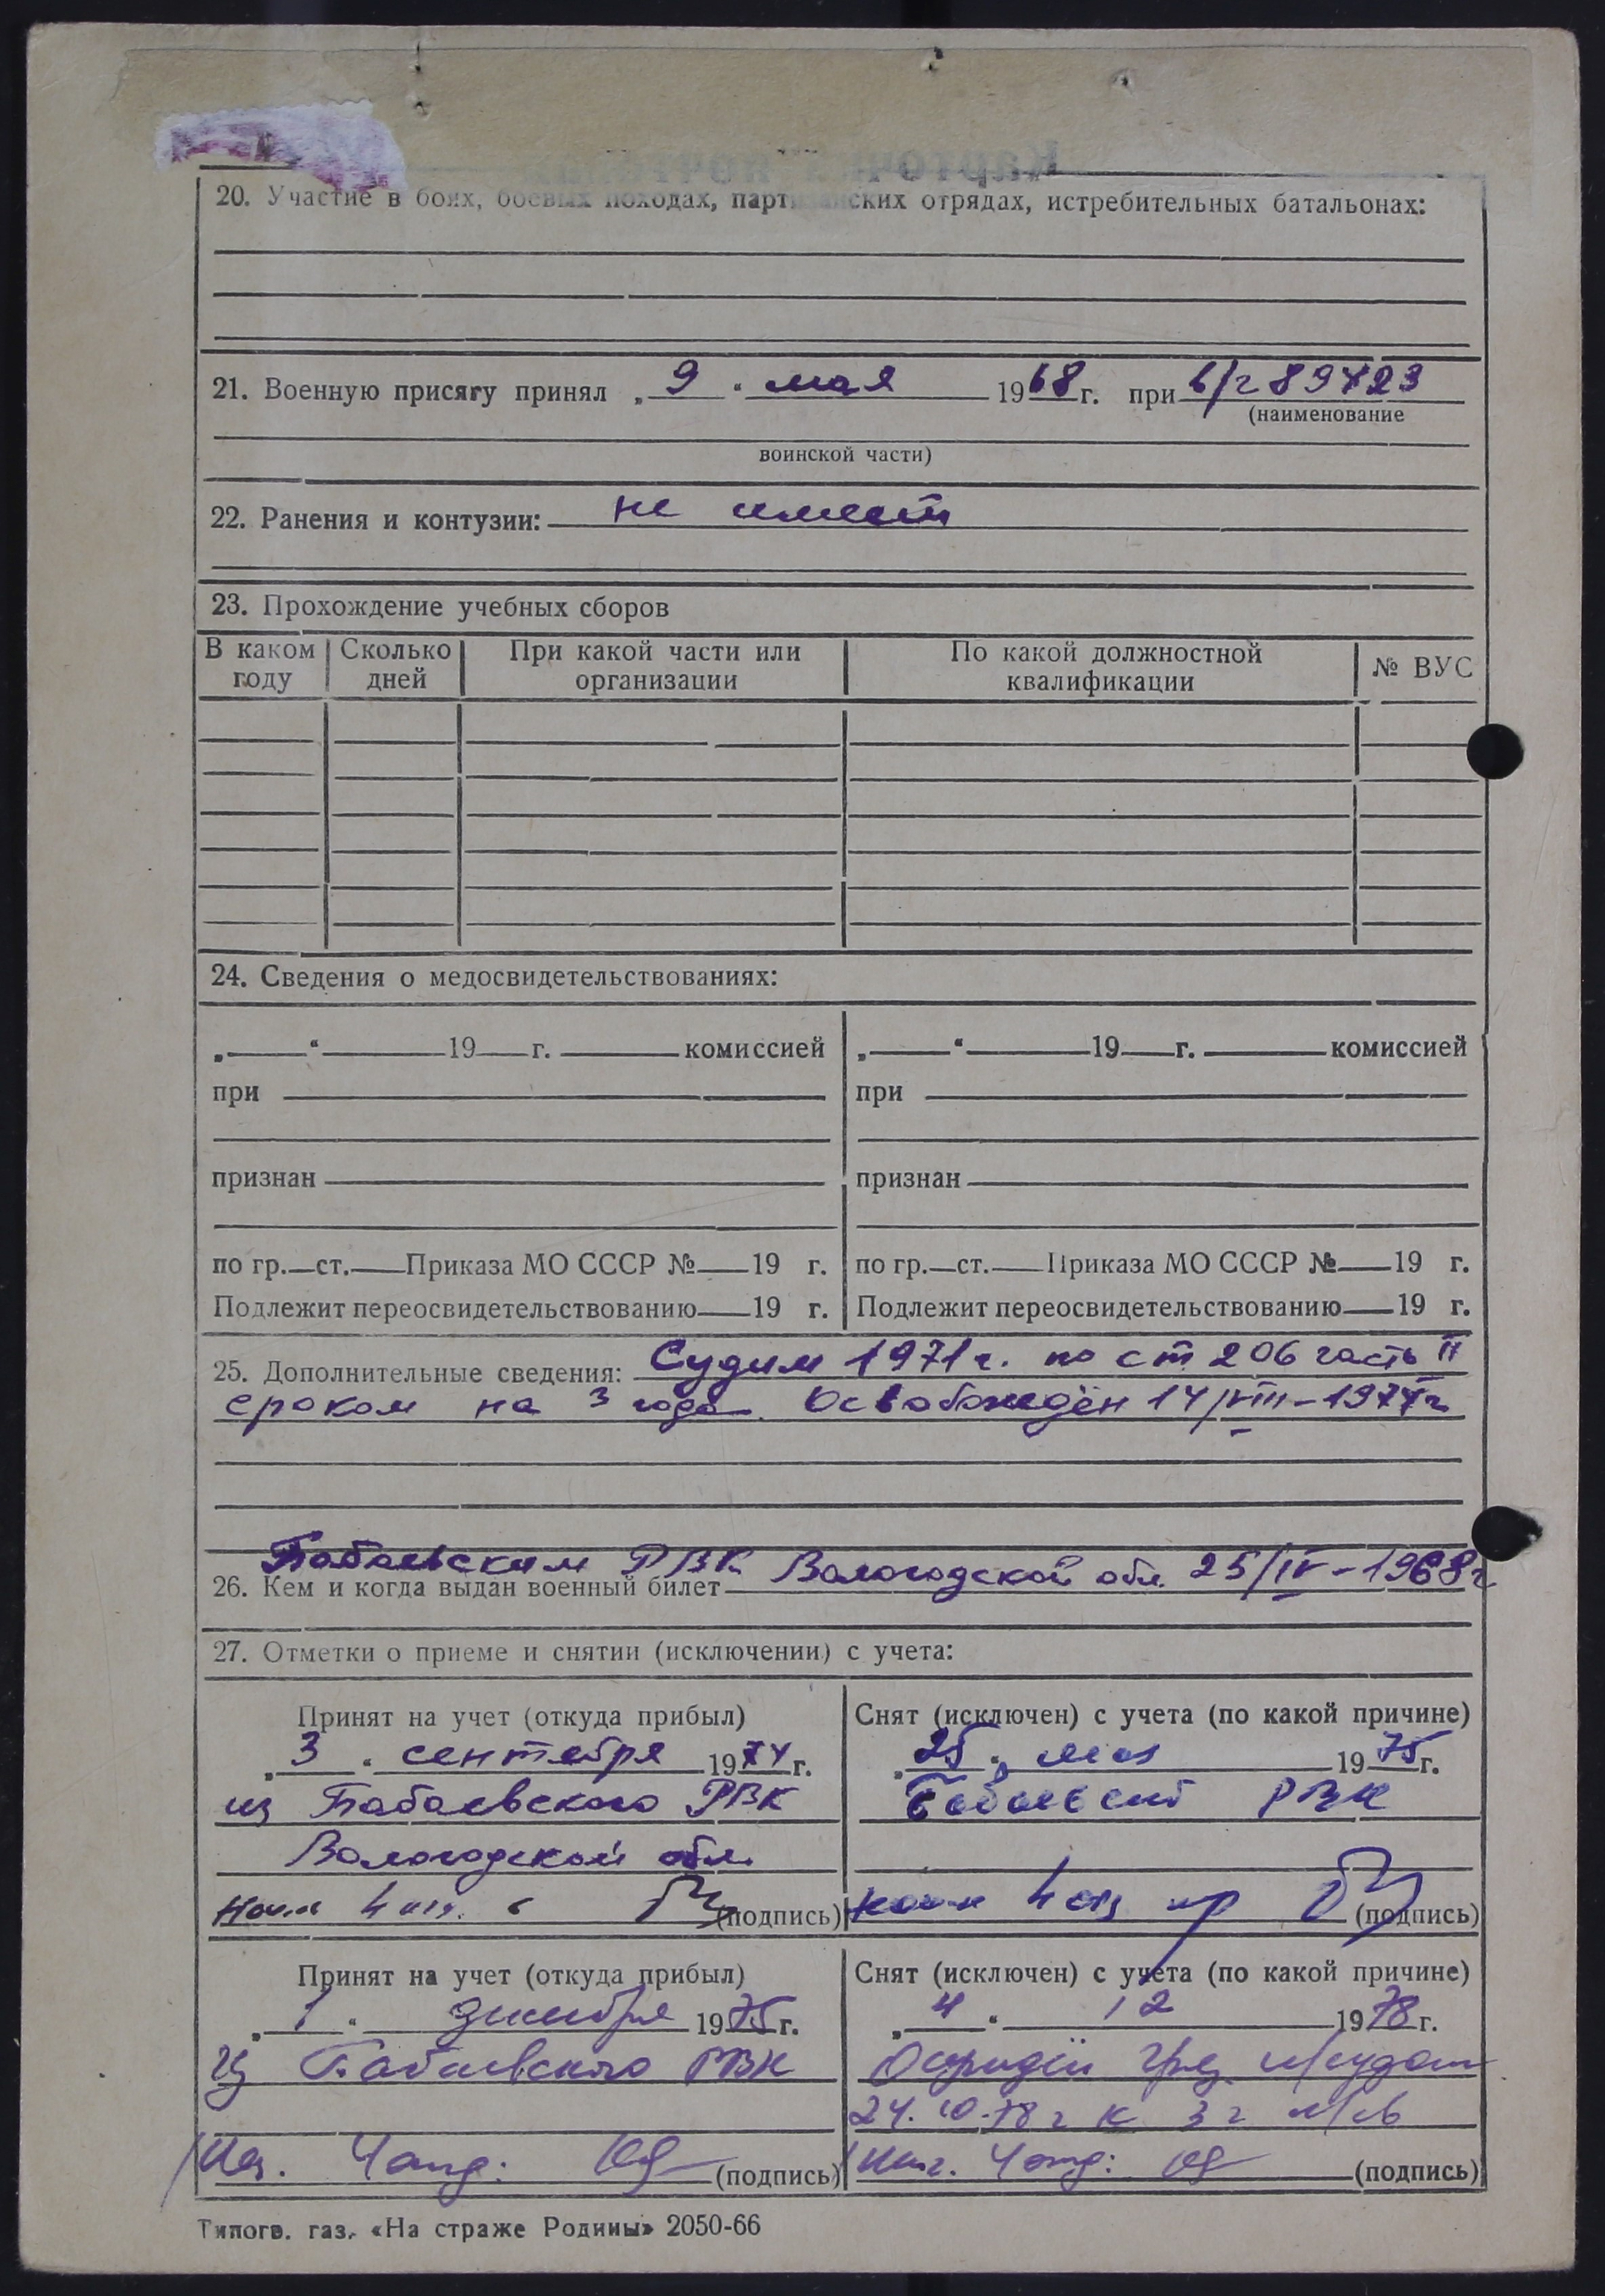 20. Участие в боях, боевых походах, партизанских отрядах, истребительных батальонах:
21. Военную присягу принял „ 9 “ мая 1968 г. при в/ч 89423
(наименование
воинской части)
22. Ранения и контузии: не имеет
23. Прохождение учебных сборов
В каком году | Сколько дней | При какой части или организации | По какой должностной квалификации | № ВУС
24. Сведения о медосвидетельствованиях:
„ “ 19 г. комиссией | „ “ 19 г. комиссией
при | при
признан | признан
по гр. ст. Приказа МО СССР № 19 г. | по гр. ст. Приказа МО СССР № 19 г.
Подлежит переосвидетельствованию 19 г. | Подлежит переосвидетельствованию 19 г.
25. Дополнительные сведения: Судим 1971 г. по ст 206 часть II
сроком на 3 года. Освобождён 14/VIII-1974 г
Бабаевским РВК Вологодской обл. 25/IV-1968 г
26. Кем и когда выдан военный билет
27. Отметки о приеме и снятии (исключении) с учета:
Принят на учет (откуда прибыл) | Снят (исключен) с учета (по какой причине)
„ 3 “ сентября 1974 г. | „ 25 “ мая 1975 г.
из Бабаевского РВК | Бабаевский РВК
Вологодской обл.
(подпись) | (подпись)
Принят на учет (откуда прибыл) | Снят (исключен) с учета (по какой причине)
„ 1 “ декабря 1975 г. | „ 4 “ 12 1978 г.
Из Бабаевского РВК | Осужден н/судом
24.10.78 г к 3 г л/св
(подпись) | (подпись)
Типогр. газ. «На страже Родины» 2050-66